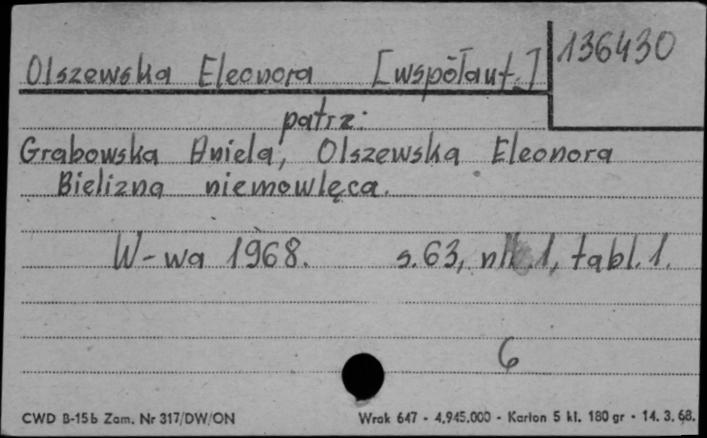 Olszewska Eleonora [współaut.] 136430
patrz:
Grabowska Aniela, Olszewska Eleonora
Bielizna niemowlęca.
W-wa 1968. s. 63, nlb. 1, tabl. 1.
6
CWD B-15b Zam. Nr 317/DW/ON Wrak 647 - 4.945.000 - Karton 5 kl. 180 gr - 14. 3. 68.